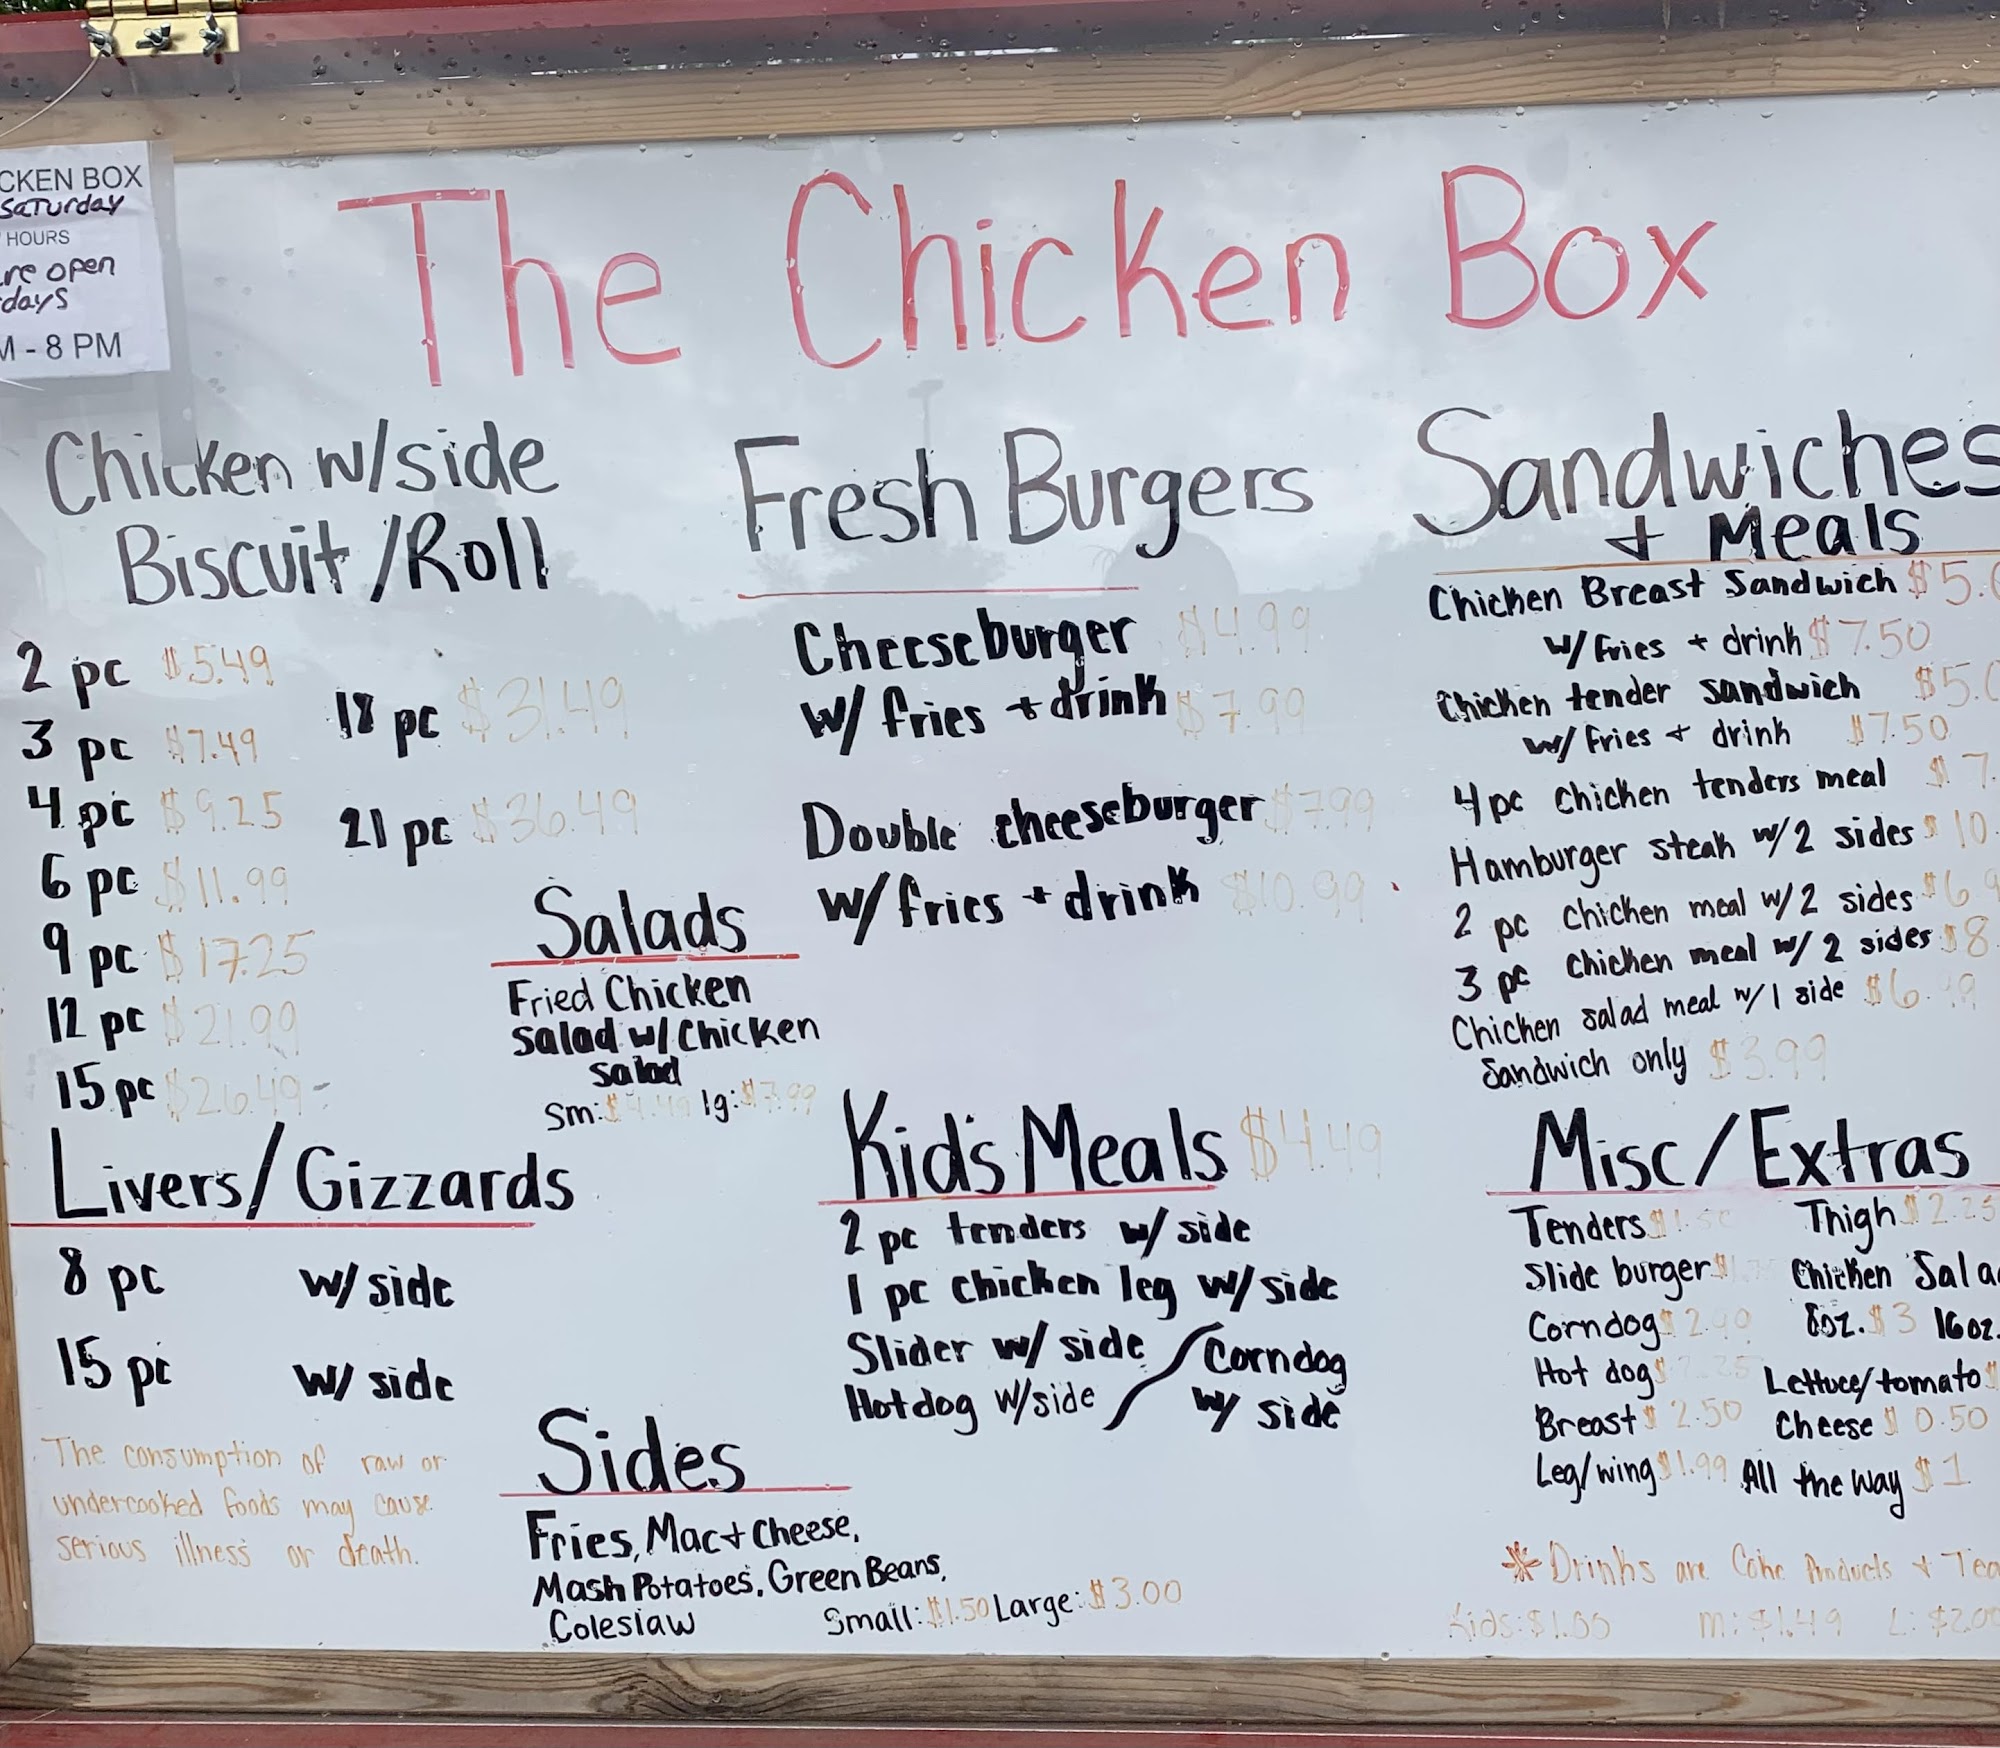 CKEN BOX
Saturday
HOURS
are open
days
M - 8 PM
The Chicken Box
Chicken w/side
Biscuit/Roll
2 pc $5.49
3 pc $7.49
4 pc $9.25
6 pc $11.99
9 pc $17.25
12 pc $21.99
15 pc $26.49
18 pc $31.49
21 pc $36.49
Salads
Fried Chicken
Salad w/ Chicken
Salad
Sm: $4.49 lg: $7.99
Livers/Gizzards
8 pc w/ side
15 pc w/ side
The consumption of raw or
undercooked foods may cause
serious illness or death.
Fresh Burgers
Cheeseburger $4.99
w/ fries + drink $7.99
Double cheeseburger $7.99
w/ fries + drink $10.99
Kid's Meals $4.49
2 pc tenders w/ side
1 pc chicken leg w/ side
Slider w/ side / Corndog
Hotdog w/side / w/ side
Sides
Fries, Mac + Cheese,
Mash Potatoes, Green Beans,
Coleslaw Small: $1.50 Large: $3.00
Sandwiches
+ Meals
Chicken Breast Sandwich $5.
w/ fries + drink $7.50
Chicken tender sandwich $5.
w/ fries + drink $7.50
4 pc chicken tenders meal $7.
Hamburger steak w/2 sides $10.
2 pc chicken meal w/2 sides $6.
3 pc chicken meal w/ 2 sides $8
Chicken salad meal w/1 side $6.49
Sandwich only $3.99
Misc/Extras
Tenders Thigh $2.25
Slide burger Chicken Sala
Corndog 8oz. $3 16oz.
Hot dog Lettuce/tomato $
Breast $2.50 Cheese $0.50
Leg/wing $1.99 All the Way $1
* Drinks are Coke Products + Tea
Kids: $1.00 m: $1.49 L: $2.00